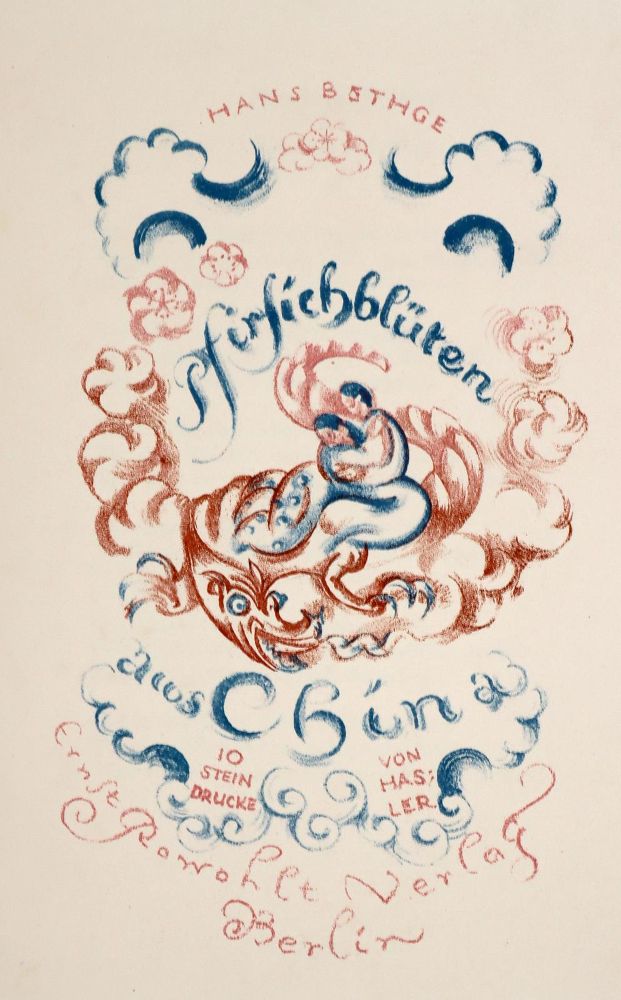 HANS BETHGE
Pfirsichblüten
aus China
10
STEIN
DRUCKE
VON
HAS:
LER
Ernst Rowohlt Verlag
Berlin